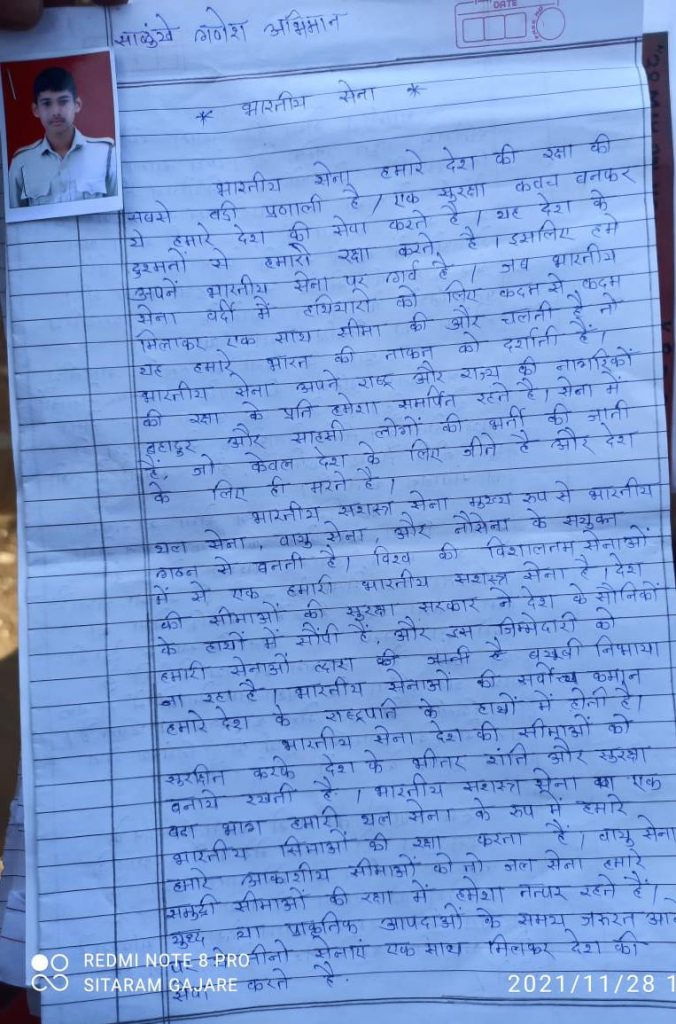 साळुंखे गणेश अभिमान
DATE
* भारतीय सेना *
भारतीय सेना हमारे देश की रक्षा की
सबसे बडी प्रणाली है / एक सुरक्षा कवच बनकर
ये हमारे देश की सेवा करते है / यह देश के
दुश्मनों से हमारी रक्षा करते है / इसलिए हमे
अपने भारतीय सेना पर गर्व है / जब भारतीय
सेना वर्दी में हथियारो को लिए कदम से कदम
मिलाकर एक साथ सीमा की और चलती है तो
यह हमारे भारत की ताकत को दर्शाती है /
भारतीय सेना अपने राष्ट्र और राज्य की नागरिकों
की रक्षा के प्रति हमेशा समर्पित रहते है / सेना में
बहादुर और साहसी लोगों की भर्ती की जाती
है, जो केवल देश के लिए जीते है और देश
के लिए ही मरते है /
भारतीय सशस्त्र सेना मुख्य रूप से भारतीय
थल सेना, वायु सेना, और नौसेना के सयुक्त
गठन से बनती है / विश्व की विशालतम सेनाओं
में से एक हमारी भारतीय सशस्त्र सेना है / देश
की सीमाओं की सुरक्षा सरकार ने देश के सौनिकों
के हाथों में सौंपी है, और इस जिम्मेदारी को
हमारी सेनाओं द्वारा की जाती है बखुबी निभाया
जा रहा है / भारतीय सेनाओं की सर्वोच्च कमान
हमारे देश के राष्ट्रपति के हाथों में होती है /
भारतीय सेना देश की सीमाओं को
सुरक्षित करके देश के भीतर शांति और सुरक्षा
बनाये रखती है / भारतीय सशस्त्र सेना का एक
बडा भाग हमारी थल सेना के रूप में हमारे
भारतीय सिमाओं की रक्षा करता है / वायु सेना
हमारे आकाशीय सीमाओं को तो जल सेना हमारे
समुद्री सीमाओं की रक्षा में हमेशा तत्पर रहते है /
युध्द या प्राकृतिक आपदाओं के समय जरूरत आने
पर तीनो सेनाएं एक साथ मिलकर देश की
सेवा करते है.
REDMI NOTE 8 PRO
SITARAM GAJARE
2021/11/28 1